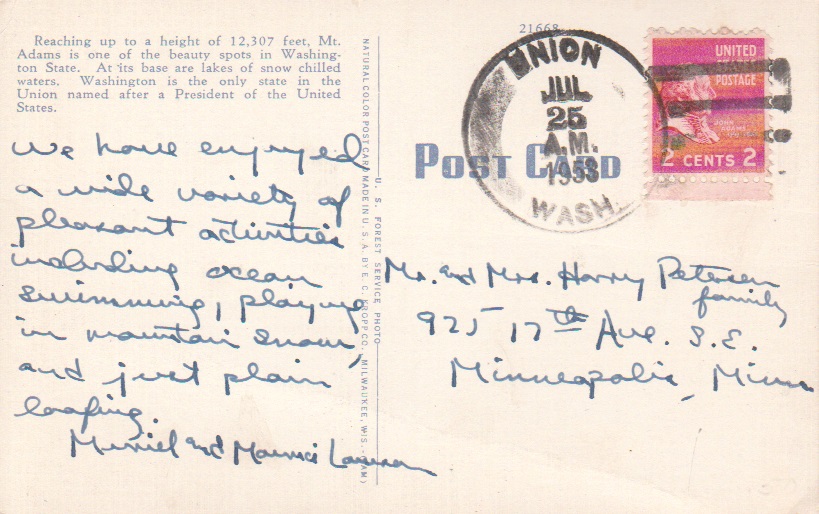 Reaching up to a height of 12,307 feet, Mt.
Adams is one of the beauty spots in Washing-
ton State. At its base are lakes of snow chilled
waters. Washington is the only state in the
Union named after a President of the United
States.
We have enjoyed
a wide variety of
pleasant activities
including ocean
swimming, playing
in mountain snow,
and just plain
loafing.
Muriel and Maurice
NATURAL COLOR POST CARD MADE IN U. S. A. BY E. C. KROPP CO., MILWAUKEE, WIS.
U. S. FOREST SERVICE PHOTO
21668
POST CARD
UNION
JUL
25
A.M.
1953
WASH.
UNITED
POSTAGE
JOHN
ADAMS
2 CENTS 2
Mr. and Mrs. Harry Petersen
family
925 17th Ave. S.E.
Minneapolis, Minn